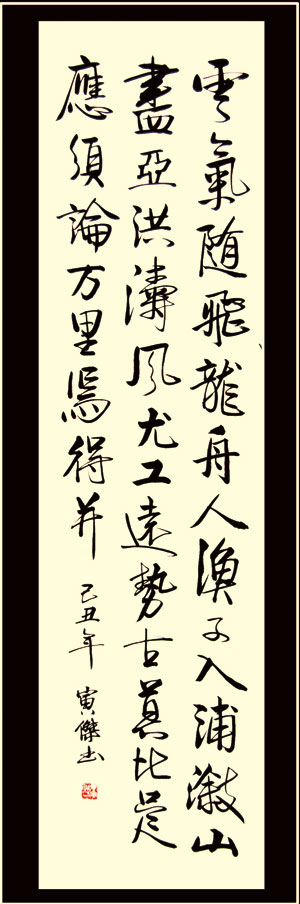 雲氣随飛龍舟人漁子入浦溆山
盡亞洪濤風尤工遠勢古莫比
應須論万里焉得并
己丑年 寅傑书